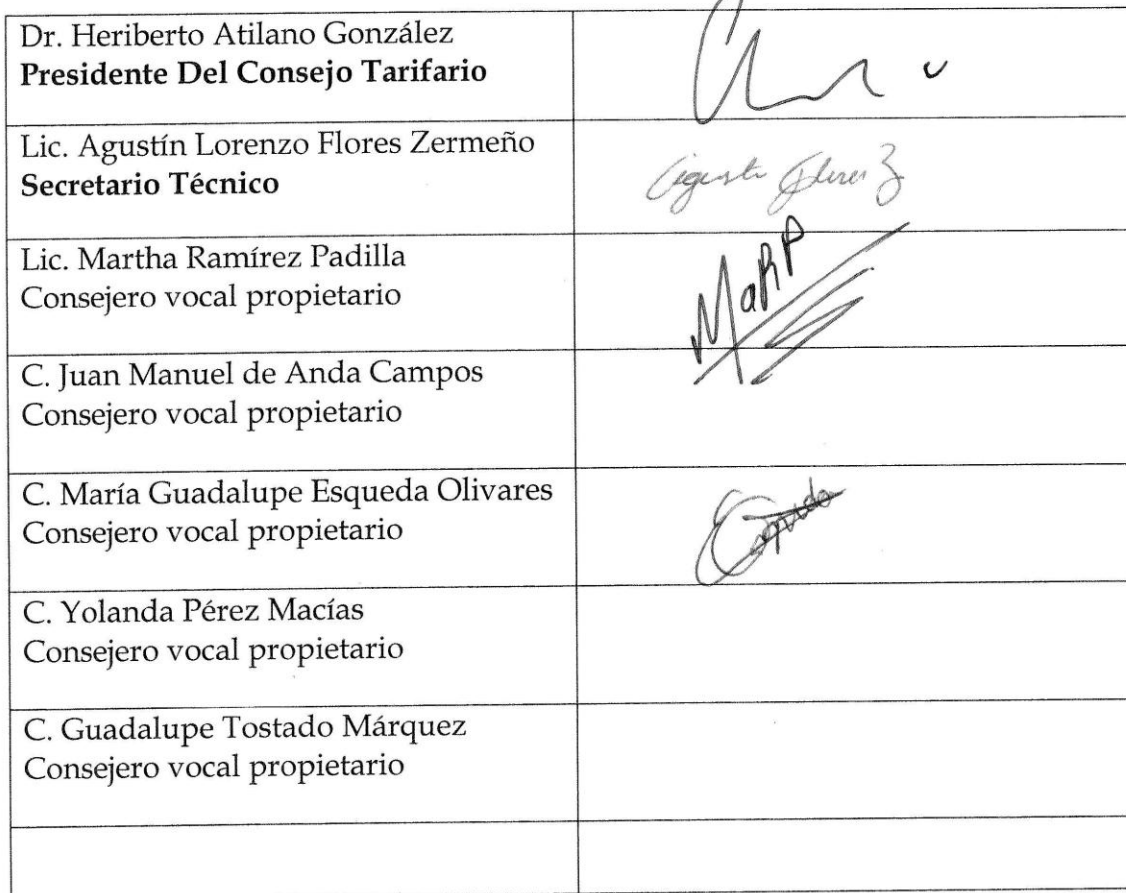 Dr. Heriberto Atilano González
Presidente Del Consejo Tarifario
Lic. Agustín Lorenzo Flores Zermeño
Secretario Técnico
Agustin Flores Z
Lic. Martha Ramírez Padilla
Consejero vocal propietario
MaRP
C. Juan Manuel de Anda Campos
Consejero vocal propietario
C. María Guadalupe Esqueda Olivares
Consejero vocal propietario
C. Yolanda Pérez Macías
Consejero vocal propietario
C. Guadalupe Tostado Márquez
Consejero vocal propietario